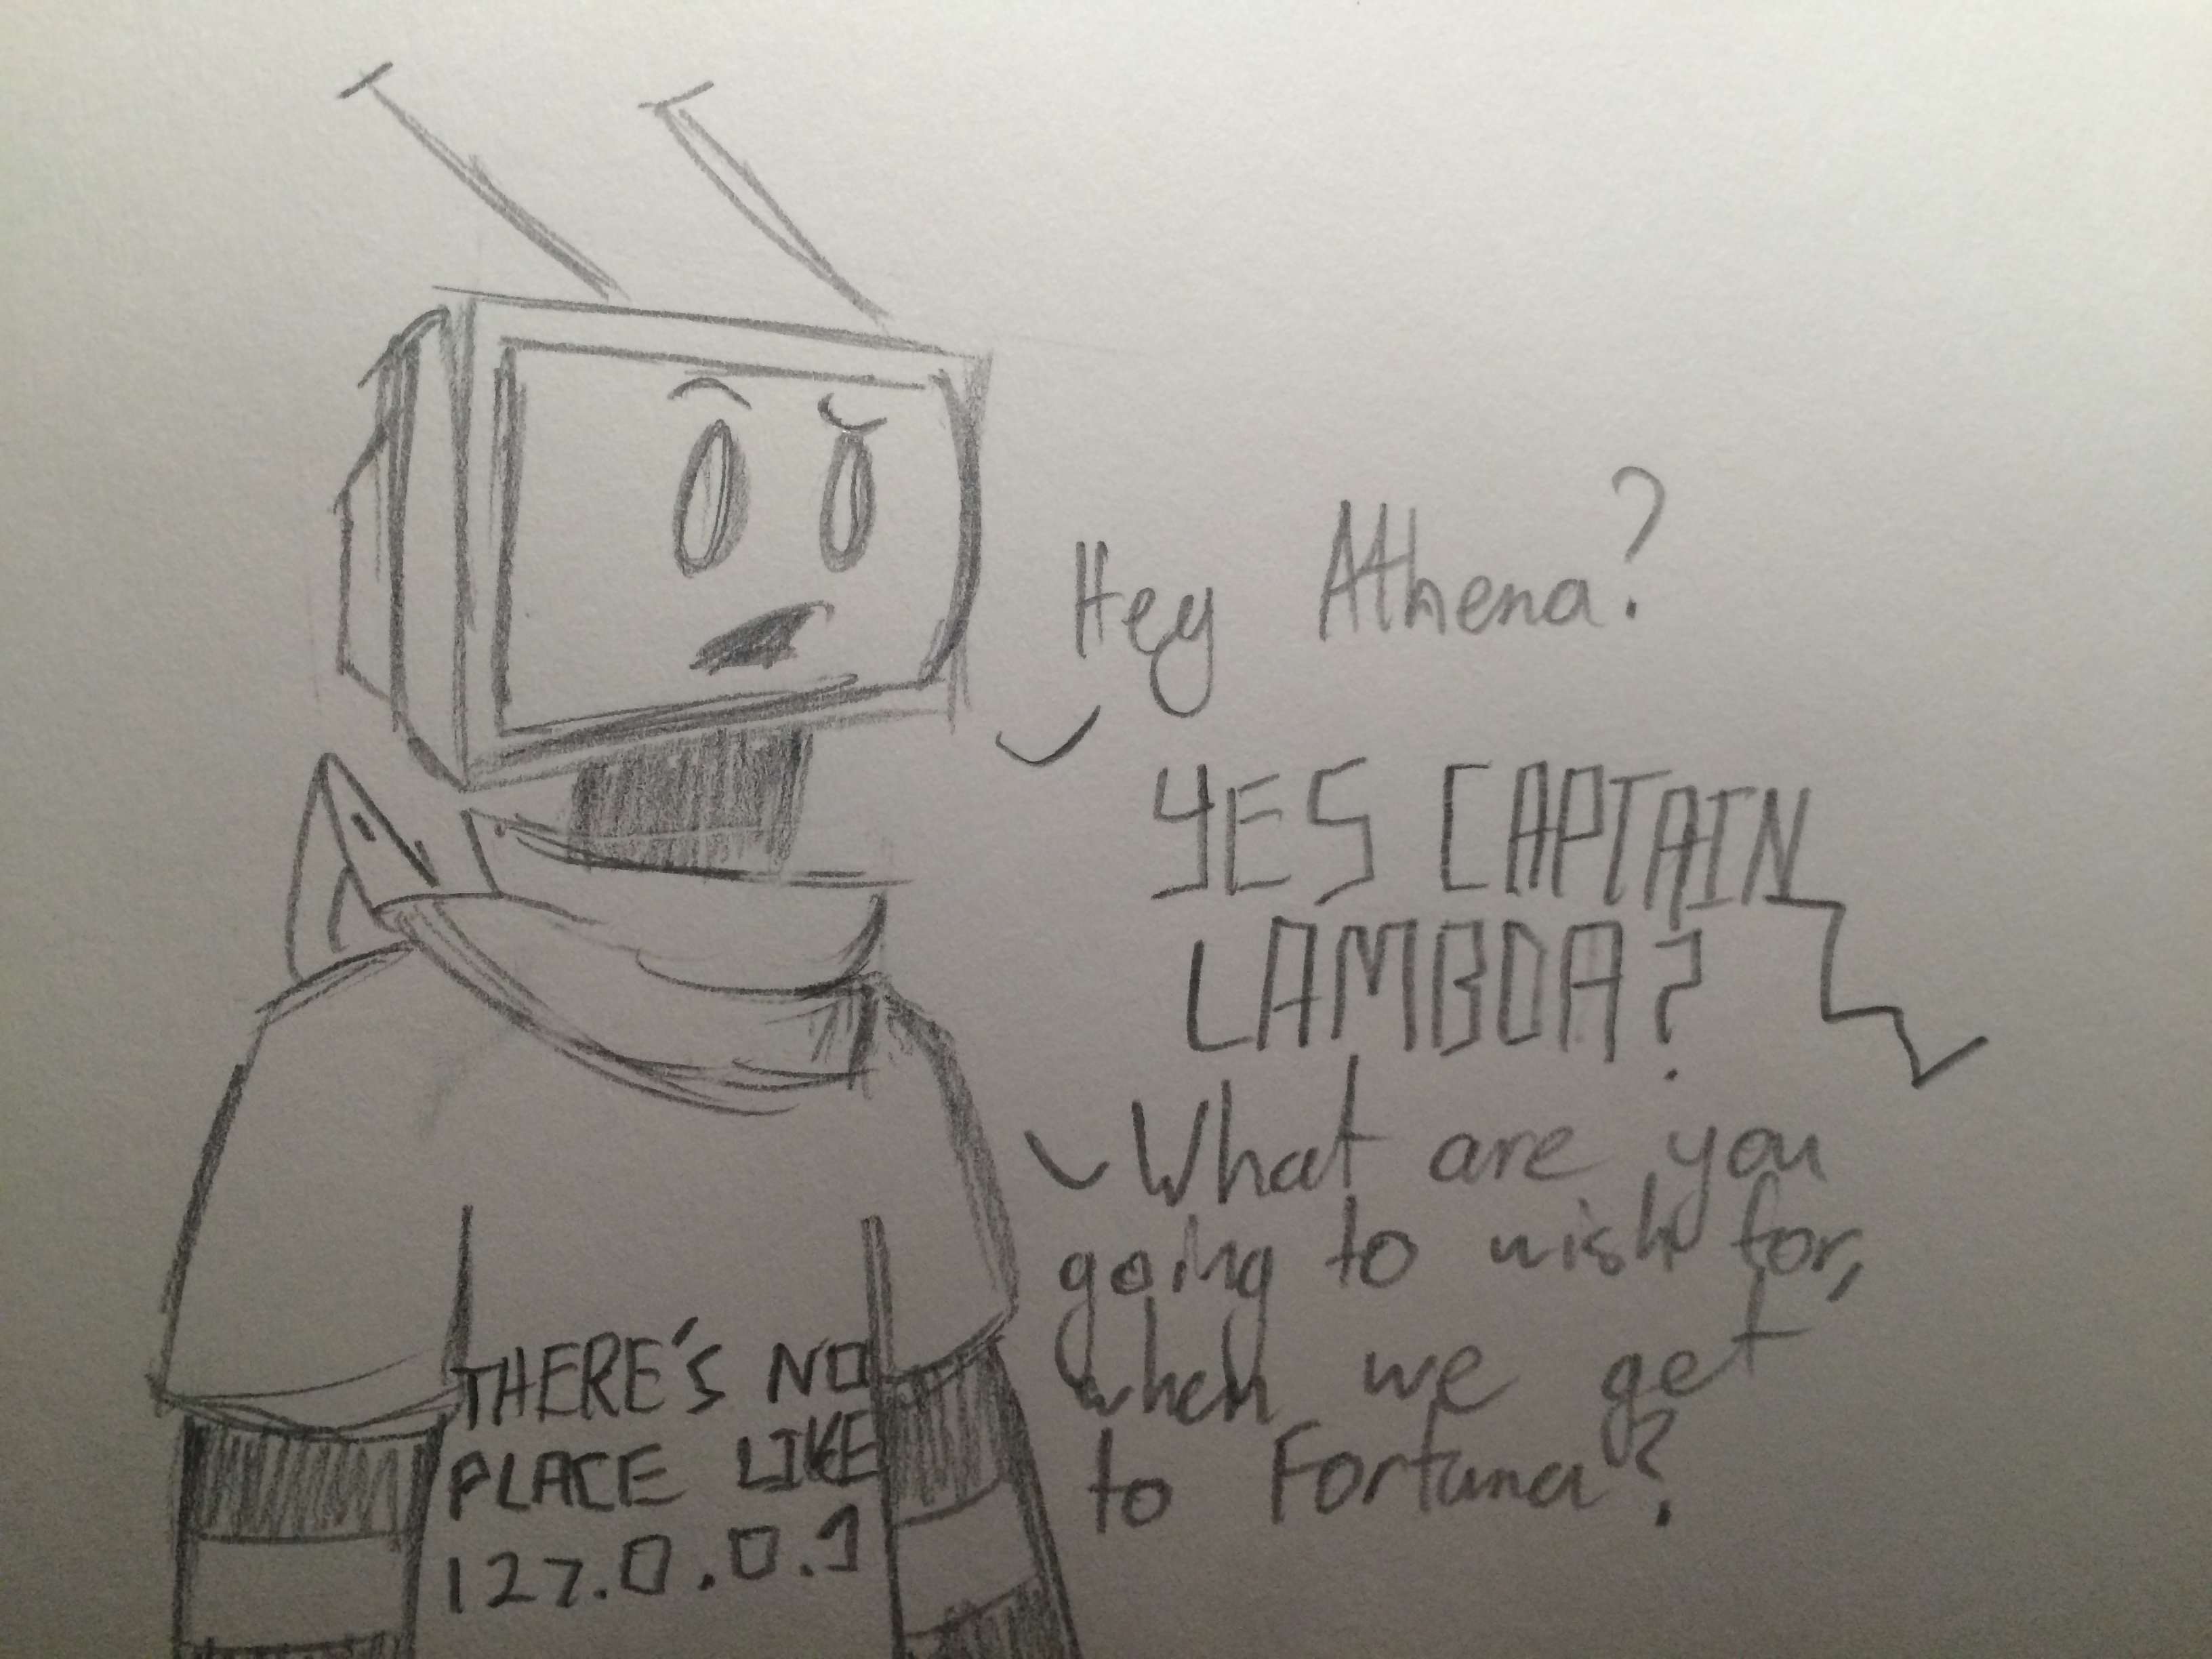 Hey Athena?
YES CAPTAIN
LAMBDA?
What are you
going to wish for,
when we get
to Fortuna?
THERE'S NO
PLACE LIKE
127.0.0.1